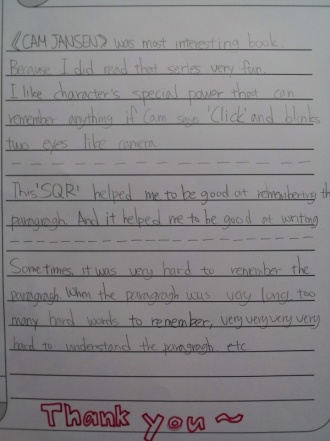 《CAM JANSEN》 was most interesting book.
Because I did read that series very fun.
I like character's special power that can
remember anything if Cam says 'Click' and blinks
two eyes like camera.
This 'SQR' helped me to be good at remembering the
paragraph. And it helped me to be good at writing
Sometimes, it was very hard to remember the
paragraph. When the paragraph was vay long, too
many hard words to remember, very very very very
hard to understand the paragraph etc
Thank you~